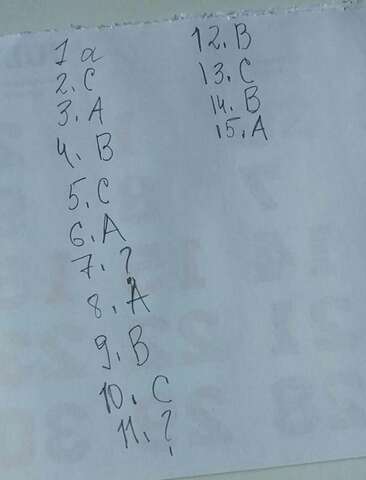 1 a
2. C
3. A
4. B
5. C
6. A
7. ?
8. A
9. B
10. C
11. ?
12. B
13. C
14. B
15. A